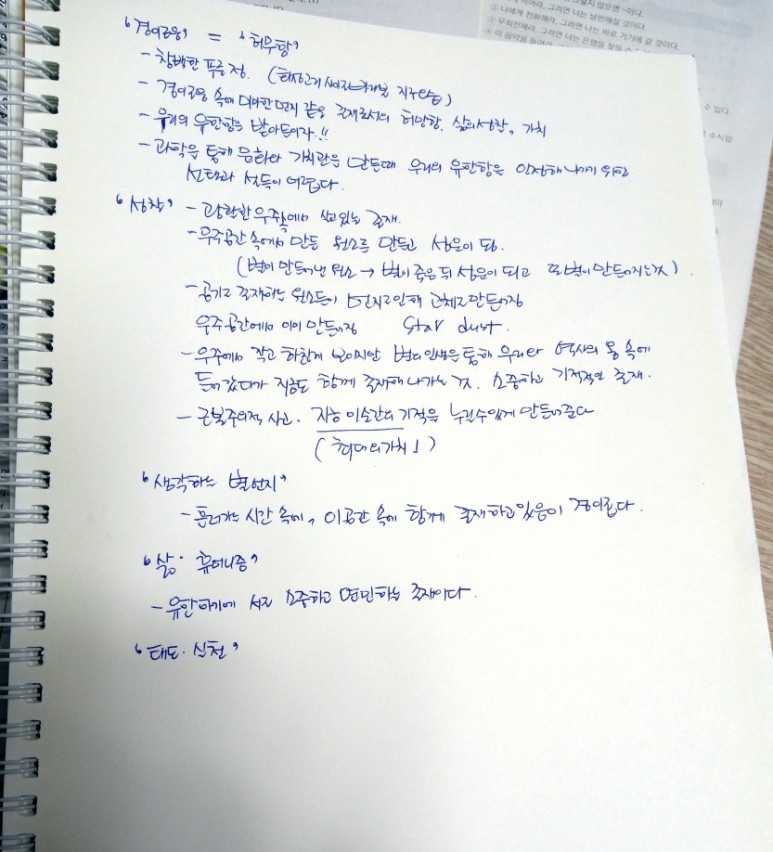 '경이로움' = '허무함'
- 창백한 푸른 점. (태양계 지구)
- 경이로움 속에 먼지 같은 존재로서의 허망함. 삶의 성찰, 가치
- 우리의 유한함을 받아들이자!!
- 과학을 통해 문화와 가치관을 만든때 우리의 유한함을 인정해나가기 위한
선택과 설득이 어렵다.
'성찰' - 광활한 우주속에서 살고있는 존재.
- 우주공간 속에서 만든 원소를 만들고 성운이 됨.
(별이 만들어낸 원소 → 별이 죽은 뒤 성운이 되고 또 별이 만들어지는 것).
- 공기로 존재하는 원소들이 먼지로 인해 고체로 만들어짐
우주공간에서 이미 만들어짐 Star dust.
- 우주에서 작고 하찮게 보이지만 별의 인생을 통해 우리와 역사의 몸 속에
들어갔다가 지금도 함께 존재해 나가는 것. 소중하고 기적적인 존재.
- 근본주의적 사고. 지금 이순간의 기적을 누릴수있게 만들어준다
(최대의가치!)
'생각하는 별먼지'
- 흘러가는 시간 속에, 이공간 속에 함께 존재하고있음이 경이롭다.
'삶. 휴머니즘'
- 유한하기에 서로 소중하고 연민하는 존재이다.
'태도. 실천'
② 나에게 전화해라. 그러면 너는
③ 우회전해라. 그러면 너는 바로 거기에 갈 것이다.